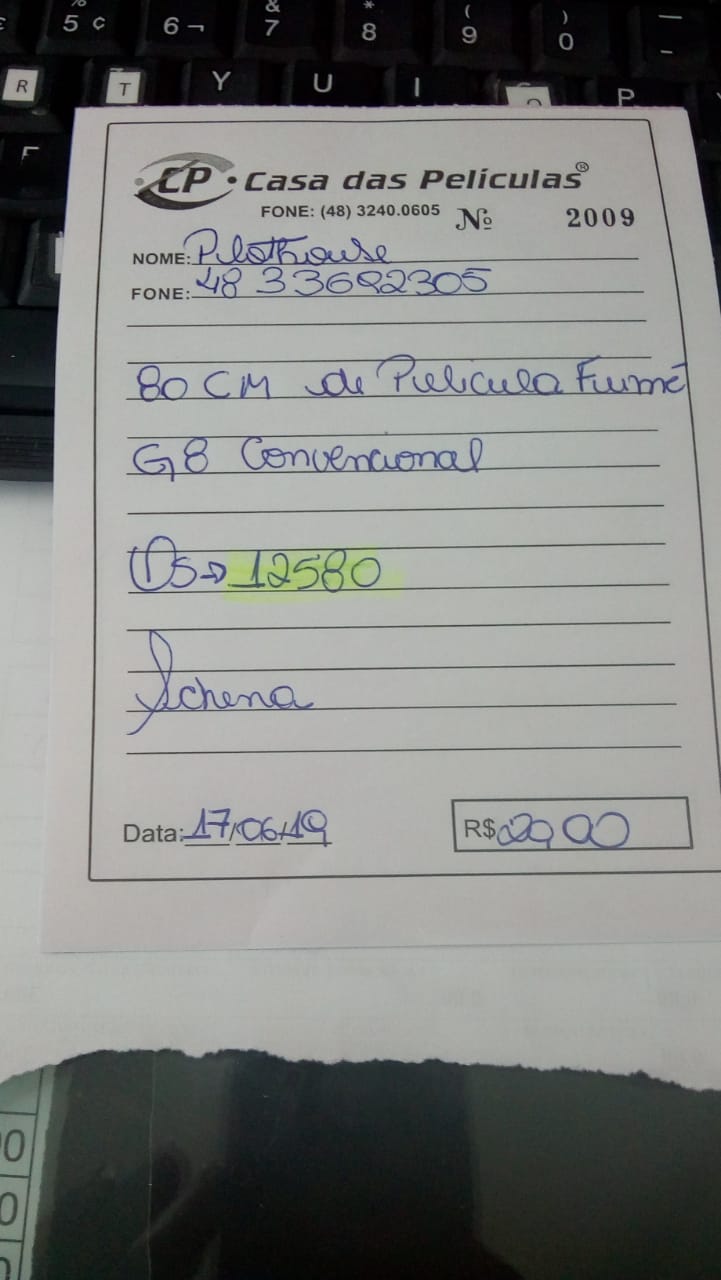 % 5 ¢ 6 ¬ & 7 * 8 ( 9 ) 0 —
R T Y U I O P
F
CP · Casa das Películas®
FONE: (48) 3240.0605 Nº 2009
NOME: Pilothouse
FONE: 48 33692305
80 CM de Pelicula Fumê
G8 Convencional
OS → 12580
Schena
Data: 17/06/19 R$ 20,00